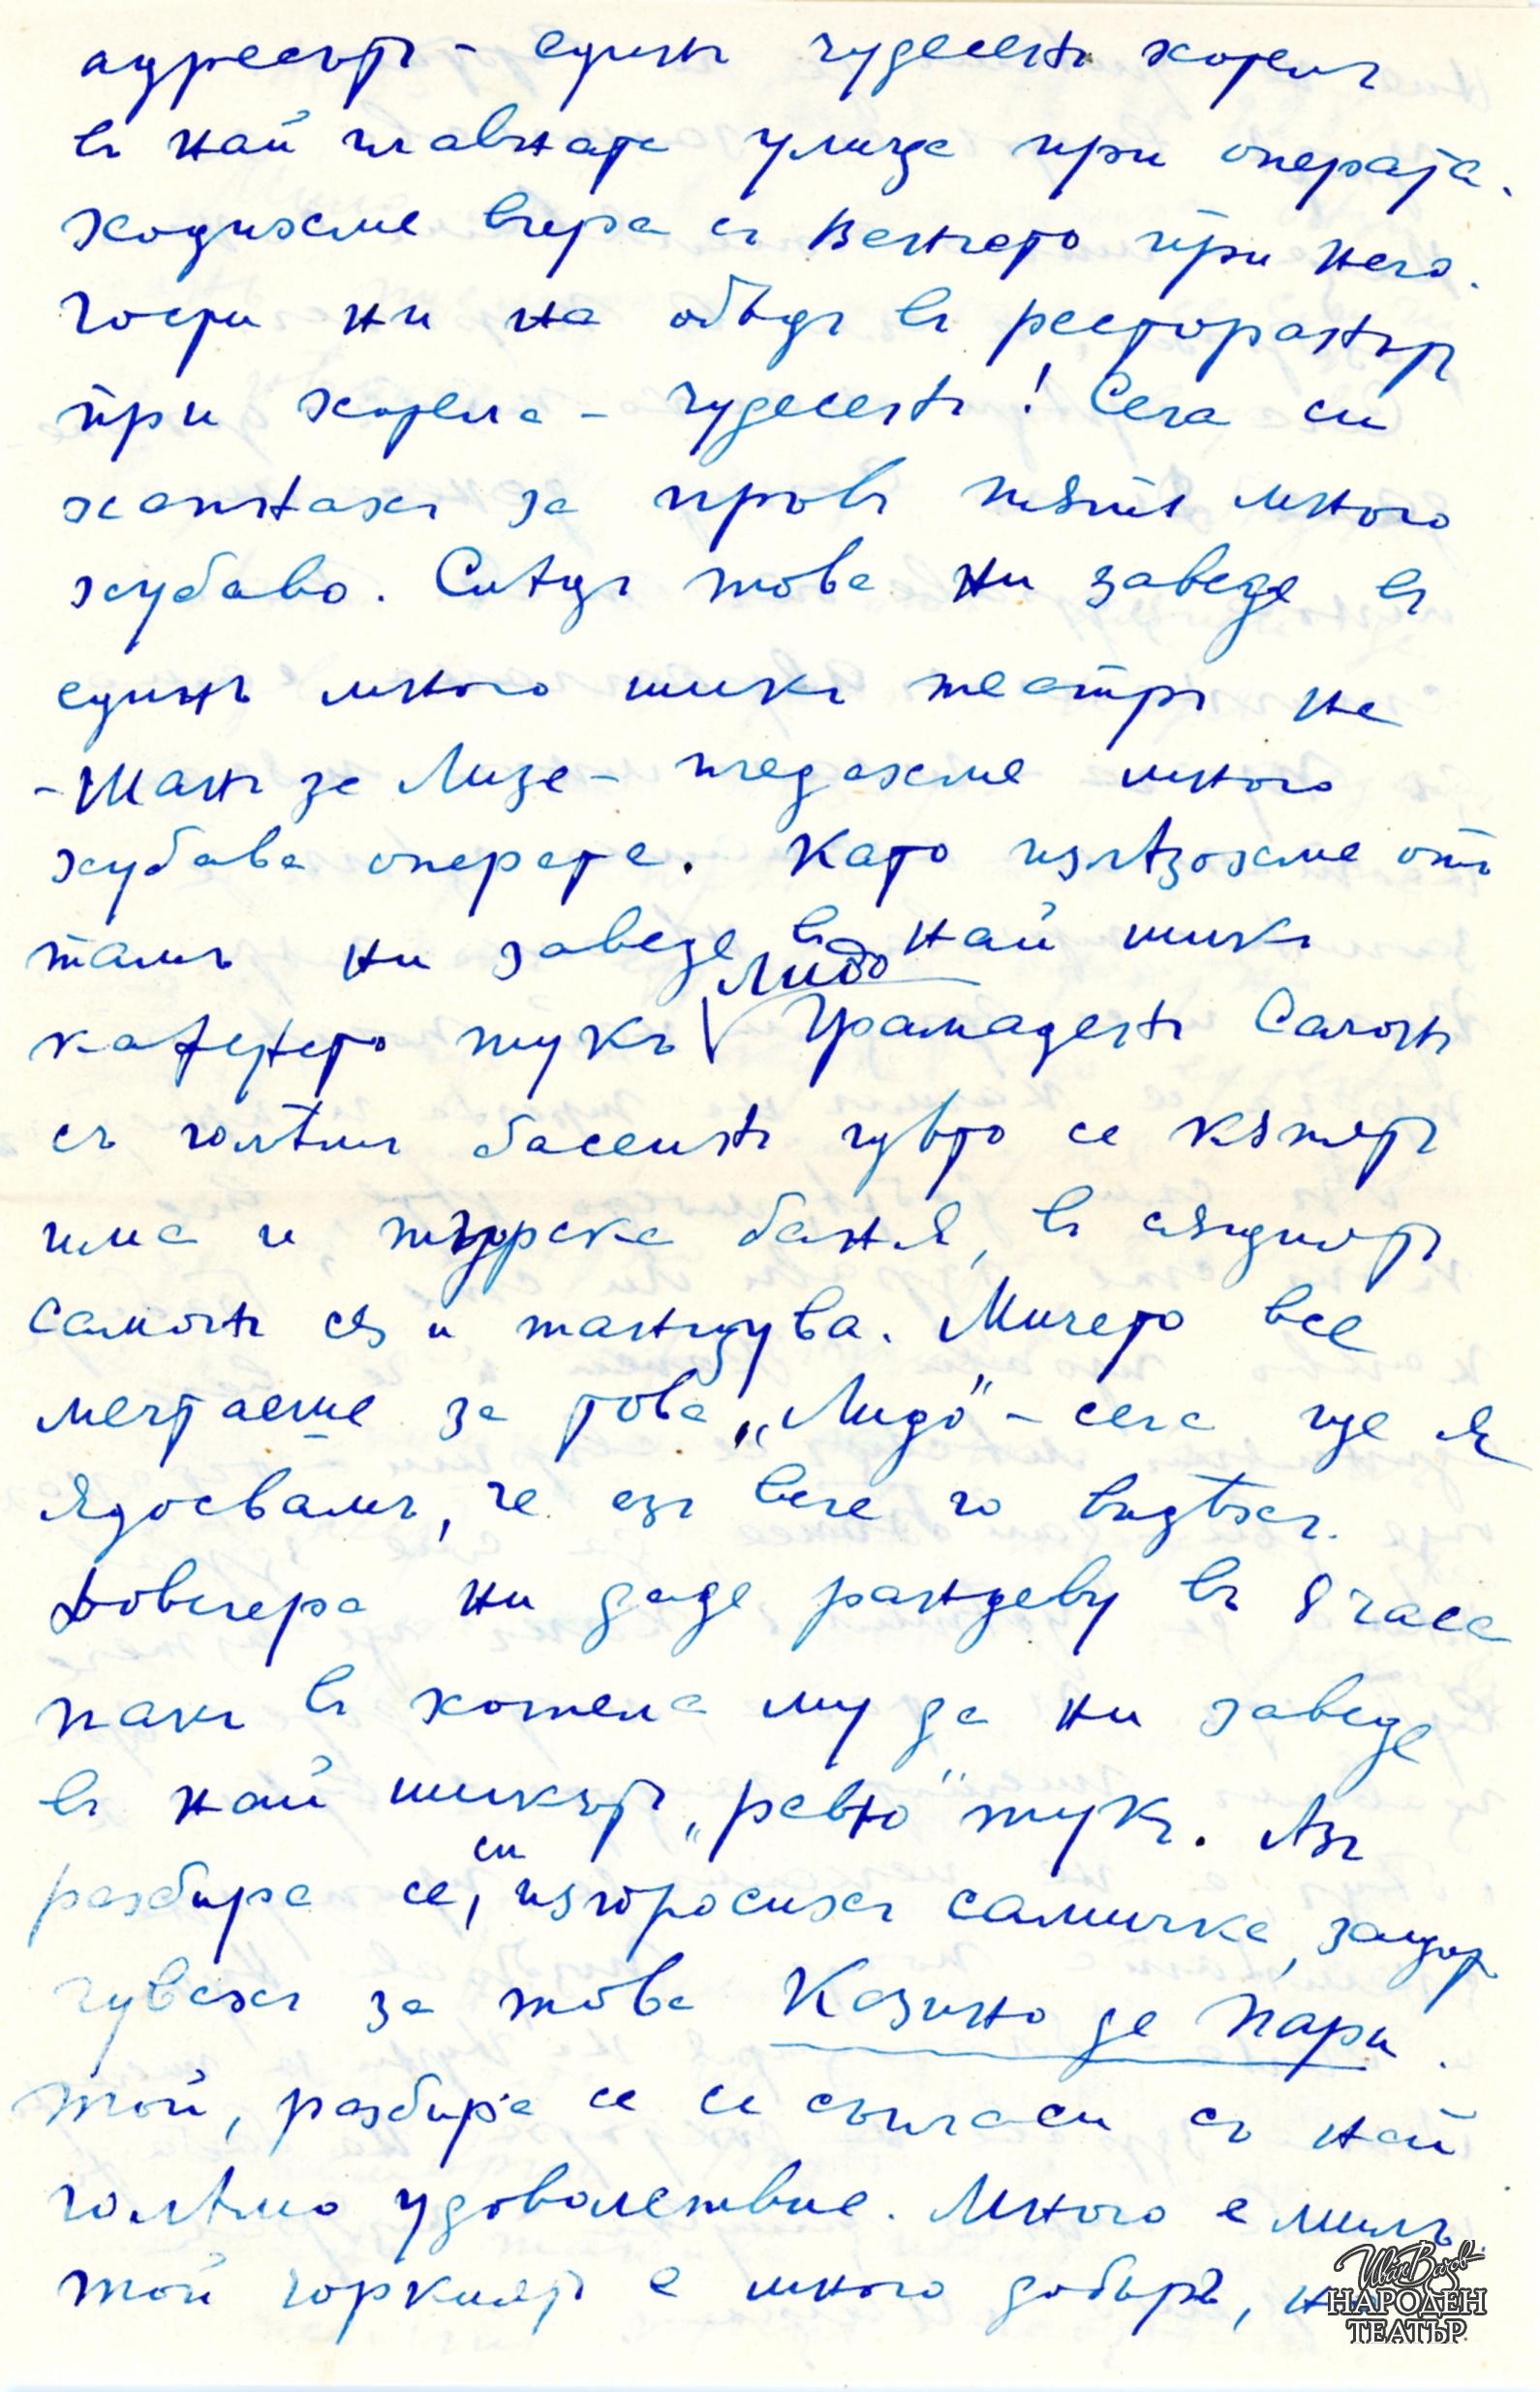 адресътъ - единъ чудесенъ хотелъ
въ най главната улица при операта.
Ходихме вчера съ Венчето при него.
Гости ни на обѣдъ въ ресторантътъ
при хотела - чудесенъ! Сега си
хапнахъ за първъ пѫть много
хубаво. Слѣдъ това ни заведе въ
единъ много шикъ театръ на
- Шанъ зе Лизе - гледахме много
хубава оперета. Като излѣзохме отъ
тамъ ни заведе въ най шикъ
кафенето тукъ Лидо Грамаденъ Салонъ
съ голѣмъ басеинъ гдѣто се кѫпятъ
има и турска баня, въ сѫщиятъ
салонъ сѫ и танцува. Мичето все
мечтаеше за това „Лидо" - сега ще я
ядосвамъ, че азъ вече го видѣхъ.
Довечера ни даде рандеву въ 8 часа
пакъ въ хотела му да ни заведе
въ най шикътъ „ревю" тукъ. Азъ
разбира се, си изпросихъ самичка, защото
чувахъ за това Казино де Пари.
Той, разбира се се съгласи съ най
голѣмо удоволствие. Много е милъ
той горкиятъ е много добъръ, но
Иван Вазов
НАРОДЕН
ТЕАТЪР